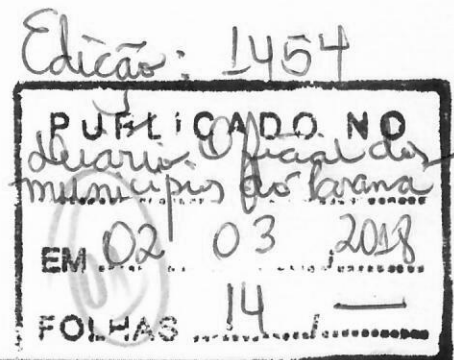 Edição: 1454
PUBLICADO NO
Diário Oficial dos
municípios do Paraná
EM 02 03 / 2018
FOLHAS 14 / —